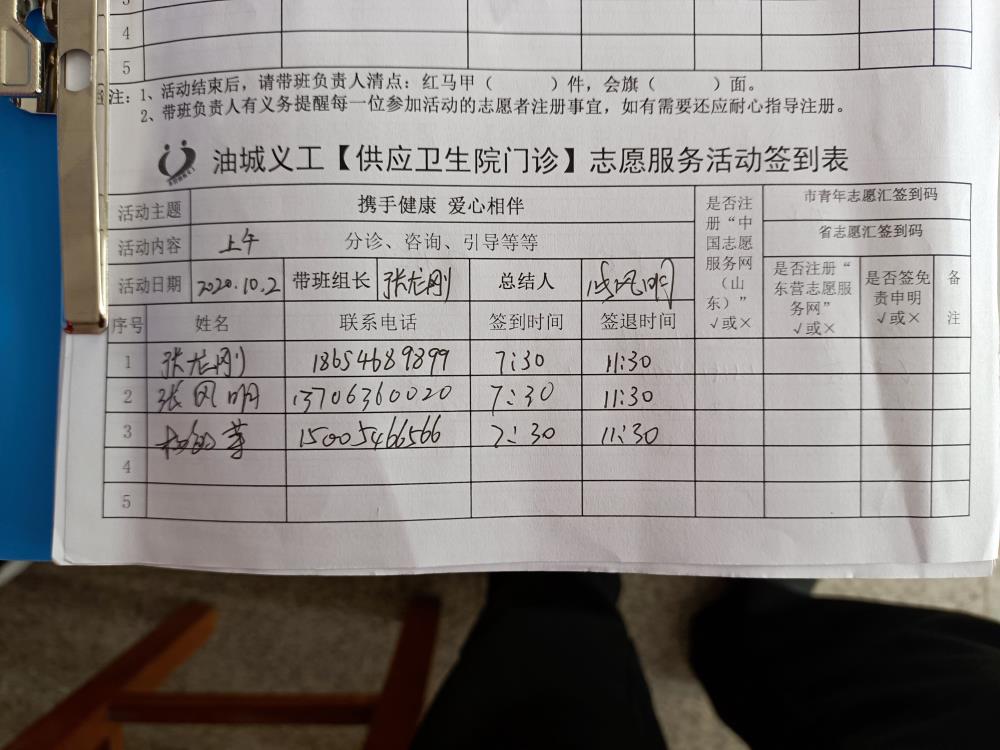 4
5
备注：1、活动结束后，请带班负责人清点：红马甲（　　　）件，会旗（　　　）面。
2、带班负责人有义务提醒每一位参加活动的志愿者注册事宜，如有需要还应耐心指导注册。
油城义工【供应卫生院门诊】志愿服务活动签到表
活动主题 携手健康 爱心相伴 是否注册“中国志愿服务网（山东）” √或× 市青年志愿汇签到码
活动内容 上午 分诊、咨询、引导等等 省志愿汇签到码
活动日期 2020.10.2 带班组长 张龙刚 总结人 是否注册“东营志愿服务网” √或× 是否签免责申明 √或× 备注
序号 姓名 联系电话 签到时间 签退时间
1 张龙刚 18654689899 7:30 11:30
2 张风明 13706360020 7:30 11:30
3 15005466566 7:30 11:30
4
5